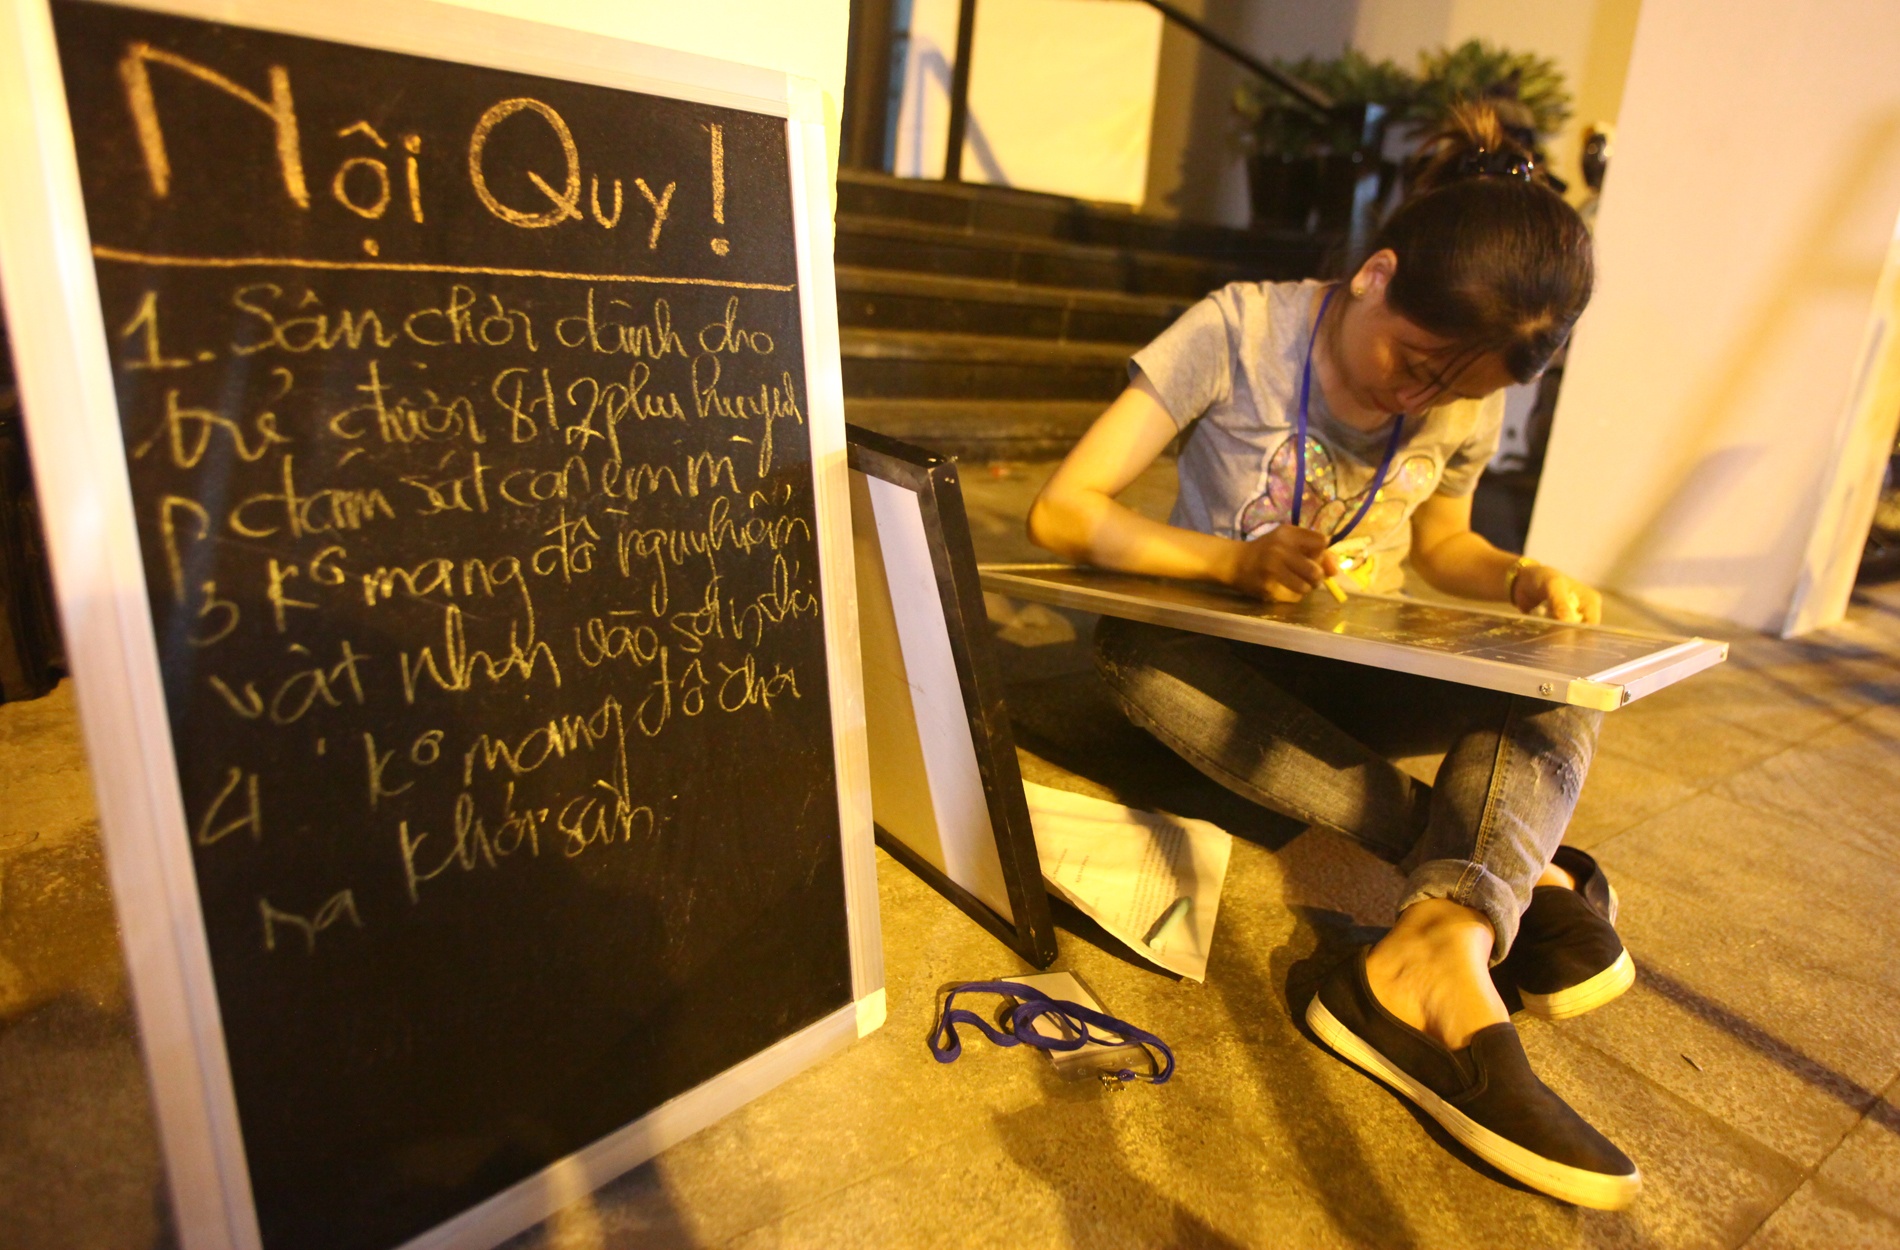 Nội Quy!
1. Sân chơi dành cho
trẻ dưới 8t 2 phụ huynh
giám sát con em m
3 Ko mang đồ nguy hiểm
vật nhọn vào sân chơi
4 Ko mang đồ chơi
ra khỏi sân.